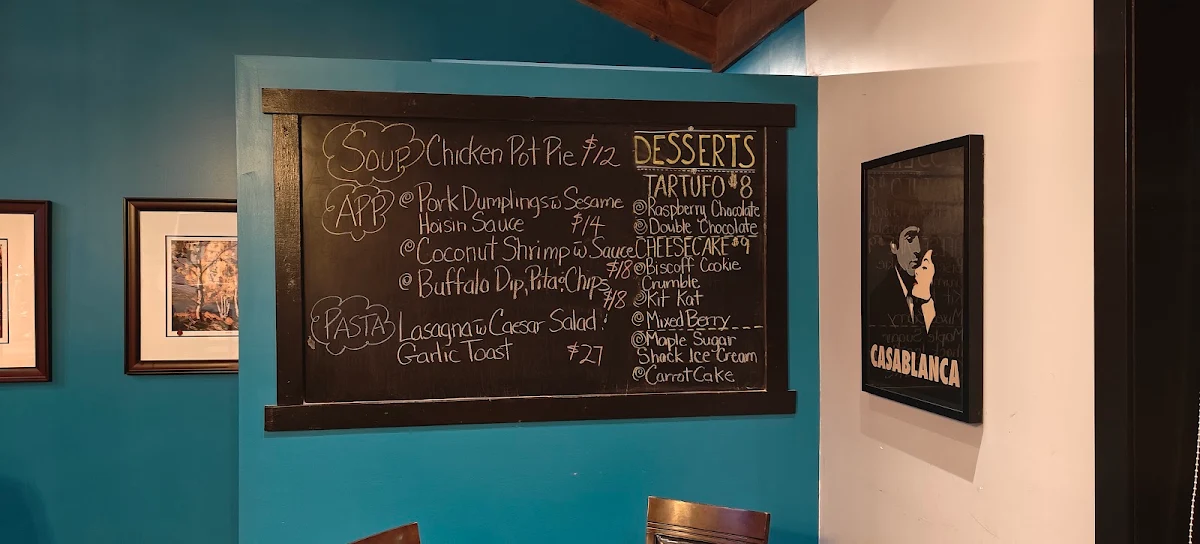 SOUP Chicken Pot Pie $12
APP
Pork Dumplings w Sesame
Hoisin Sauce $14
Coconut Shrimp w Sauce
$18
Buffalo Dip, Pita & Chips
$18
PASTA Lasagna w Caesar Salad &
Garlic Toast $27
DESSERTS
TARTUFO $8
Raspberry Chocolate
Double Chocolate
CHEESECAKE $9
Biscoff Cookie
Crumble
Kit Kat
Mixed Berry
Maple Sugar
Shack Ice-Cream
Carrot Cake
CASABLANCA